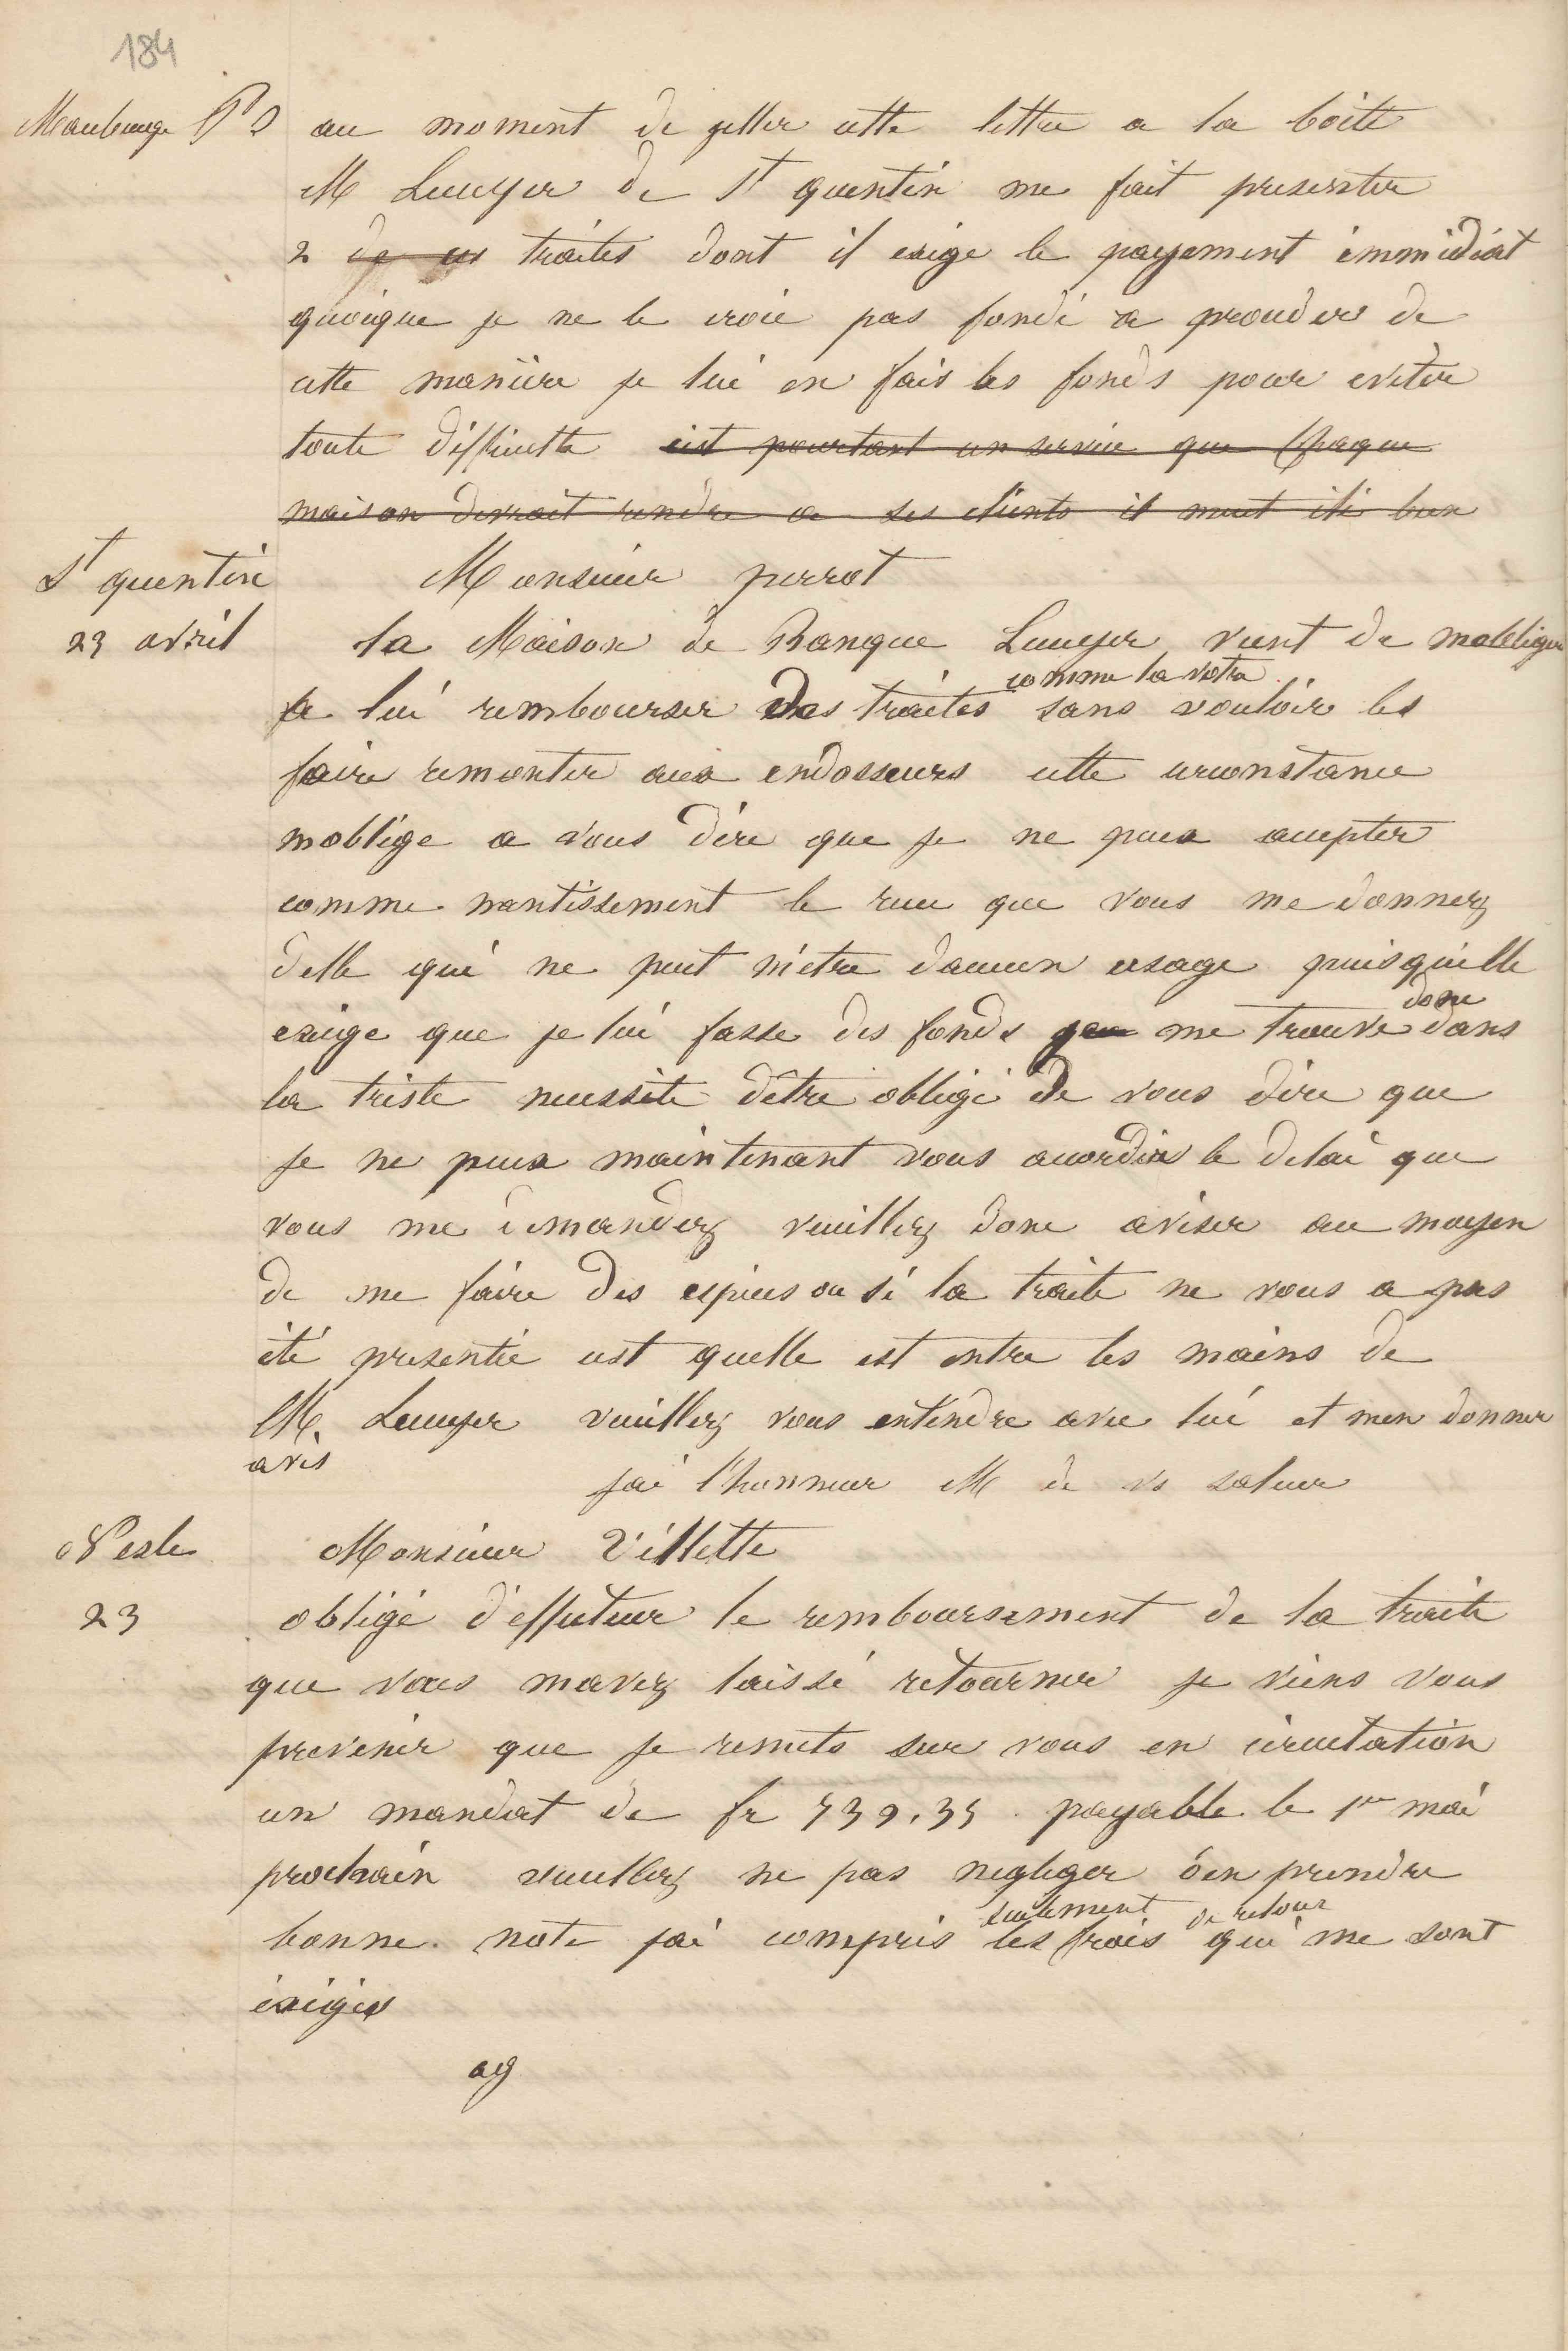 184
Maubeuge P S au moment de jetter cette lettre a la boite
M Lecuyer de St quentin me fait presenter
2 de ces traites dont il exige le payement immediat
quoique je ne le croie pas fondé a proceder de
cette maniére je lui en fais les fonds pour eviter
toute difficulté cest pourtant un service que chaque
maison devrait rendre a ses clients il meut été bien
St quentin Monsieur perrot
23 avril la Maison de Banque Lecuyer vient de mobliger
comme la votre
a lui rembourser des traites sans vouloir les
faire remonter aux endosseurs cette circonstance
moblige a vous dire que je ne peux accepter
comme nantissement le recu que vous me donnez
delle qui ne peut métre daucun usage puisquélle
donc
exige que je lui fasse des fonds me trouve dans
la triste necessité détre obligé de vous dire que
je ne peux maintenant vous accorder le delai que
vous me demandez veuillez donc aviser au moyen
de me faire des espèces ou si la traite ne vous a pas
été presentée cest quelle est entre les mains de
M. Lecuyer veuillez vous entendre avec lui et men donner
avis
jai l'honneur M de vs saluer
Nesle Monsieur Villette
23 obligé d'effectuer le remboursement de la traite
que vous mavez laissé retourner je viens vous
prevenir que je remets sur vous en circulation
un mandat de fr 539.35 payable le 1er mai
prochain veuillez ne pas negliger d'en prendre
seulement de retour
bonne note jai compris les frais qui me sont
éxigés
ag